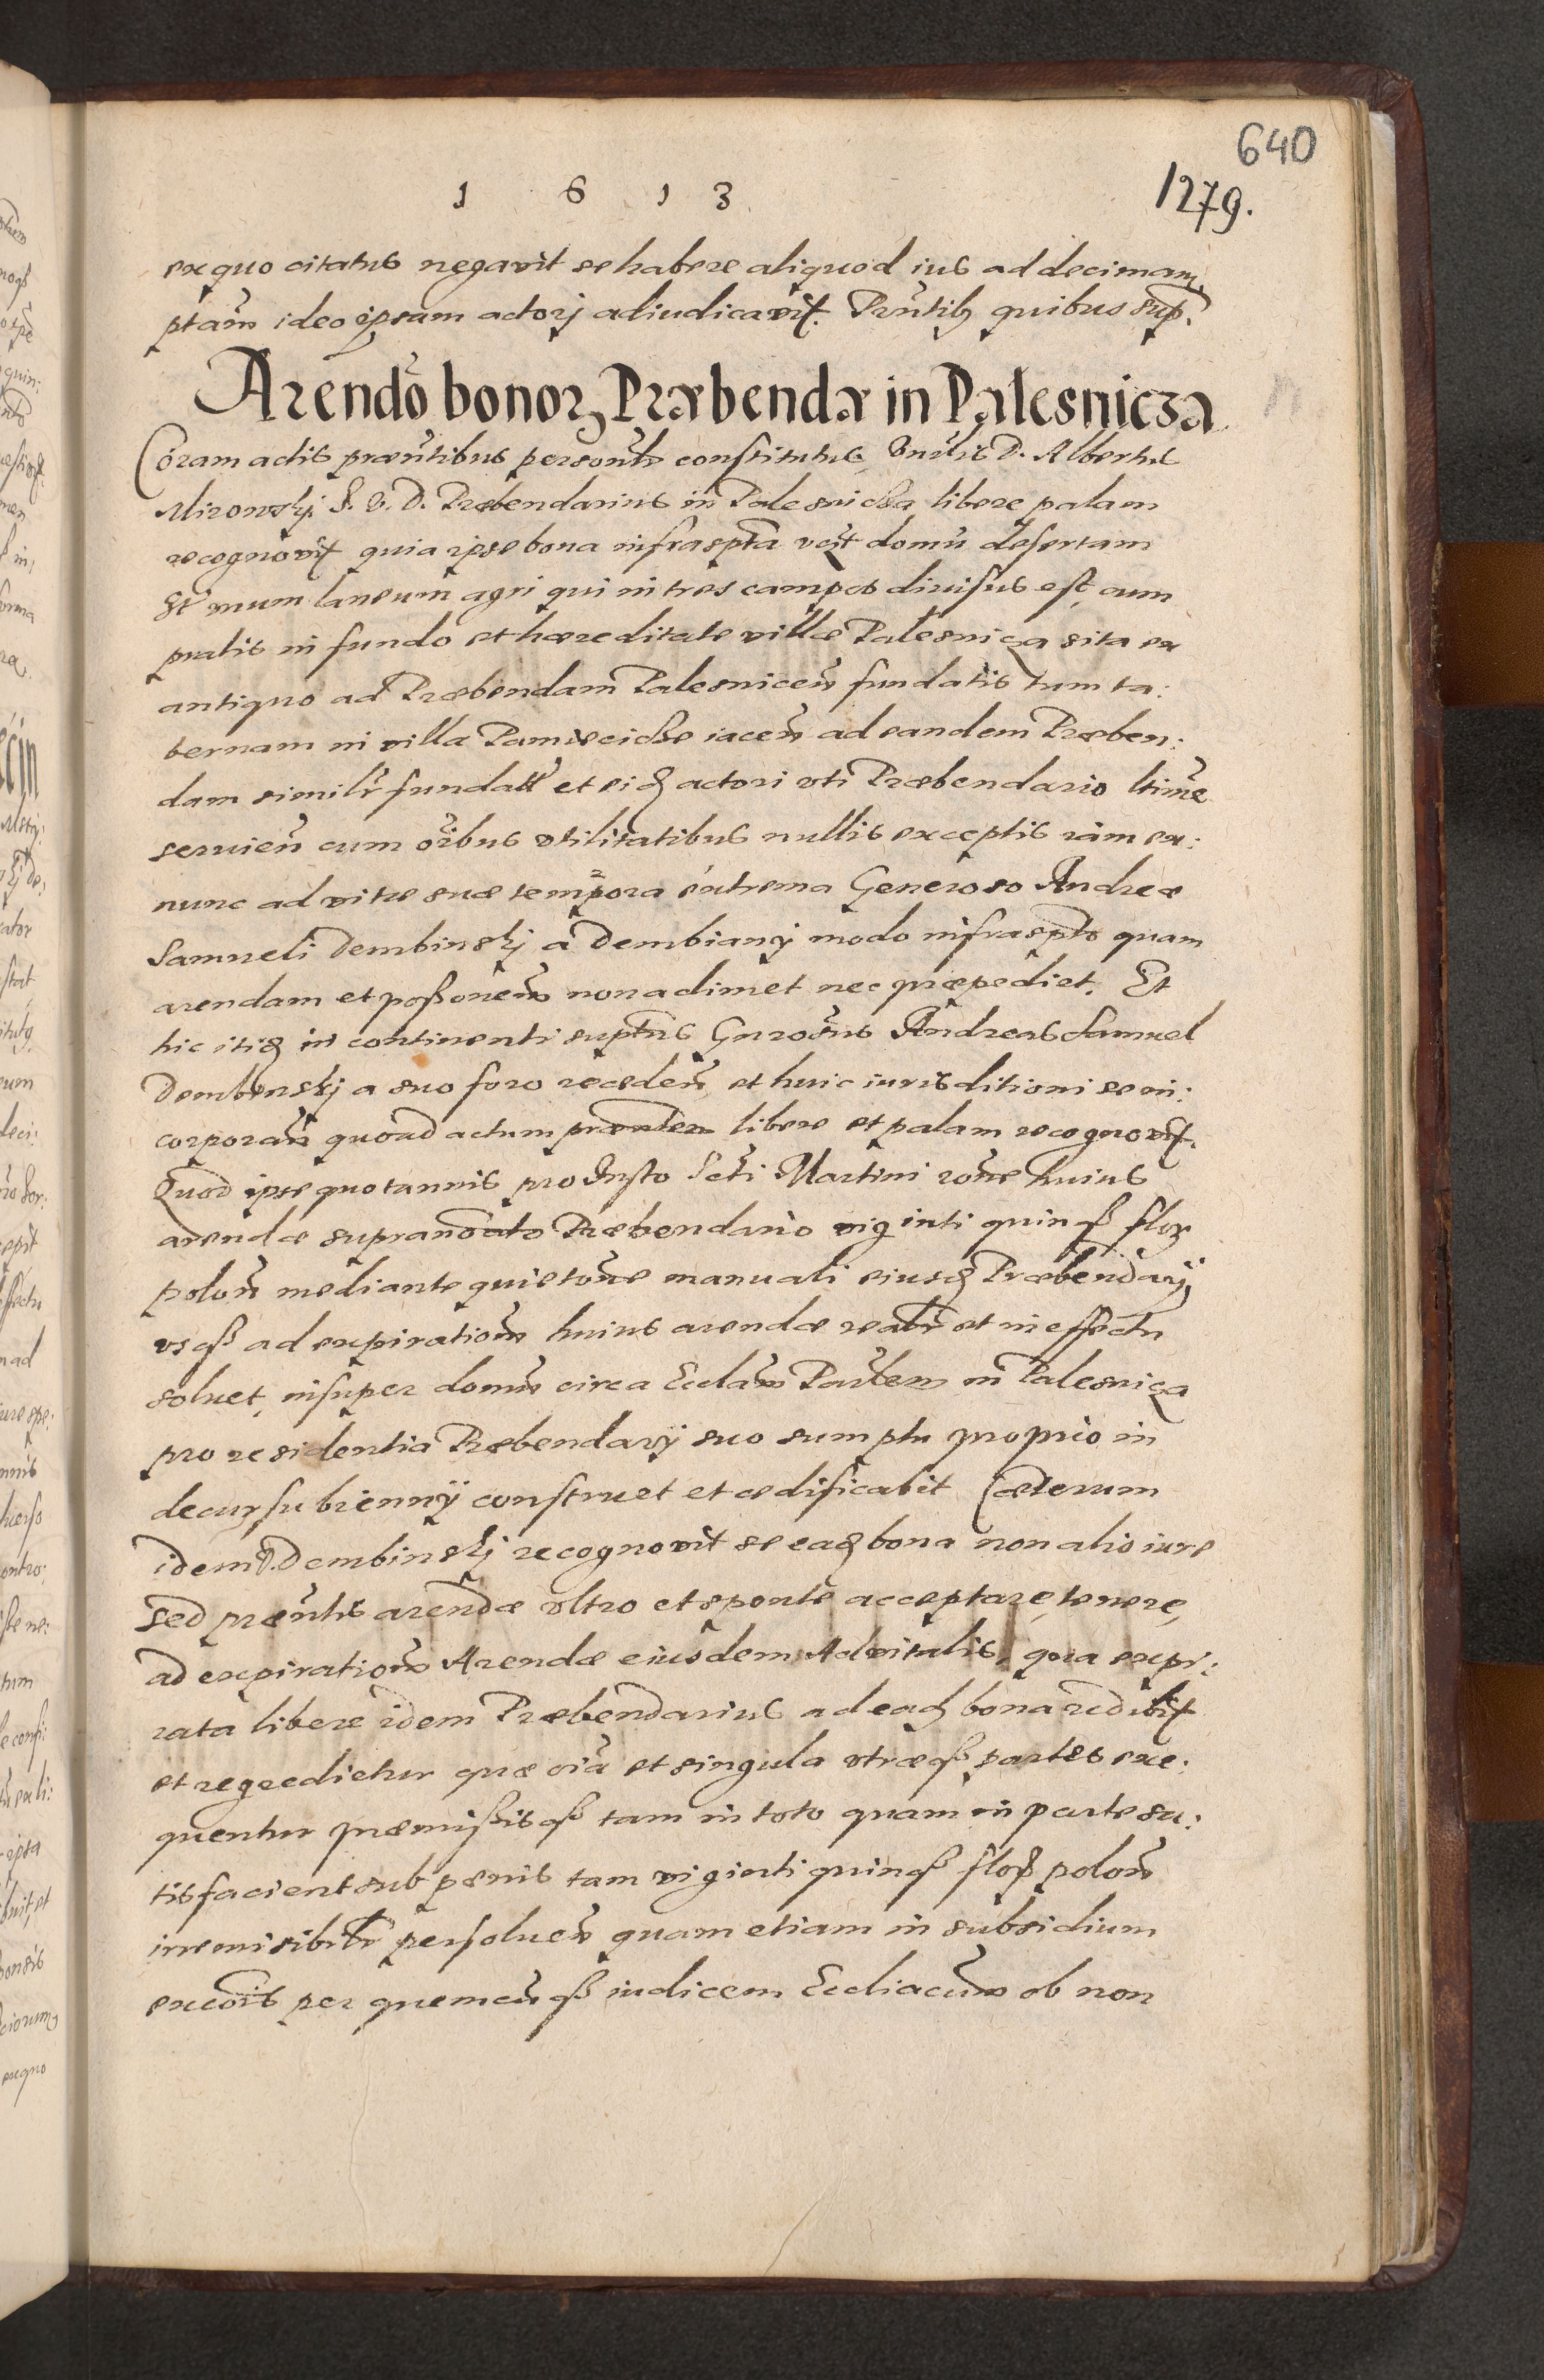 640
1 6 1 3
1279.
ex quo citatus negavit se habere aliquod ius ad decimam
ptam̃ ideo ipsam actorj adiudicavit. Pñtibꝫ quibus sup.
Arendõ bonoꝝ Præbendæ in Palesnicza
Coram actis præñtibus personlr̃ constitutus Vnrlis D. Albertus
Mirowskj. I. V. D. Præbendarius in Palesnicza libere palam
recognovit quia ipse bona infraspta vꝫt domũ desertam
et vnum laneum agri qui in tres campos diuisus est, cum
pratis in fundo et hæreditate villæ Palesnica sita ex
antiquo ad Præbendam Palesniceñ fundatis tum ta:
bernam in villa iaceñ ad eandem Præben:
dam similr̃ fundatã et eiꝫ actori vti Præbendario ltime
servieñ cum oĩbus vtilitatibus nullis exceptis iam ex:
nunc ad vitæ suæ tempora extrema Generoso Andreæ
Samueli Dembinskj a Dembianÿ modo infraspto quam
arendam et possoneñ non adimet nec præpediet. Et
hic itiꝫ in continenti suptus Gnrosus Andreas Samuel
Dembinskj a suo foro recedeñ et huic iurisditioni se in:
corporañ quoad actum præntem libere et palam recognovit.
Quod ipse quotannis pro festo Scti Martini rõne huius
arendæ supranoãto Præbendario viginti quinqꝫ floꝝ
poloñ mediante quietõne manuali eiusꝫ Præbendarÿ
vsqꝫ ad expirationẽ huius arendæ realr̃ et in effectu
soluet, insuper domũ circa Ecclam̃ Parlem in Palesnica
pro residentia Præbendarÿ suo sumptu proprio in
decursu biennÿ construet et ædificabit Cæterum
idem D. Dembinskj recognovit se eaꝫ bona non alio iure
sed præntis arendæ vltro et sponte acceptare, tenere,
ad expirationẽ Arendæ eiusdem Advitalis, qua expi:
rata libere idem Præbendarius ad eaꝫ bona redibit
et regredietur quæ oĩa et singula vtræqꝫ partes exe:
quentur præmissisqꝫ tam in toto quam in parte sa:
tisfacient sub pænis tam viginti quinqꝫ floꝝ poloñ
irremisibilr̃ persolueñ quam etiam in subsidium
excõis per quemcũqꝫ iudicem Eccliacum ob non